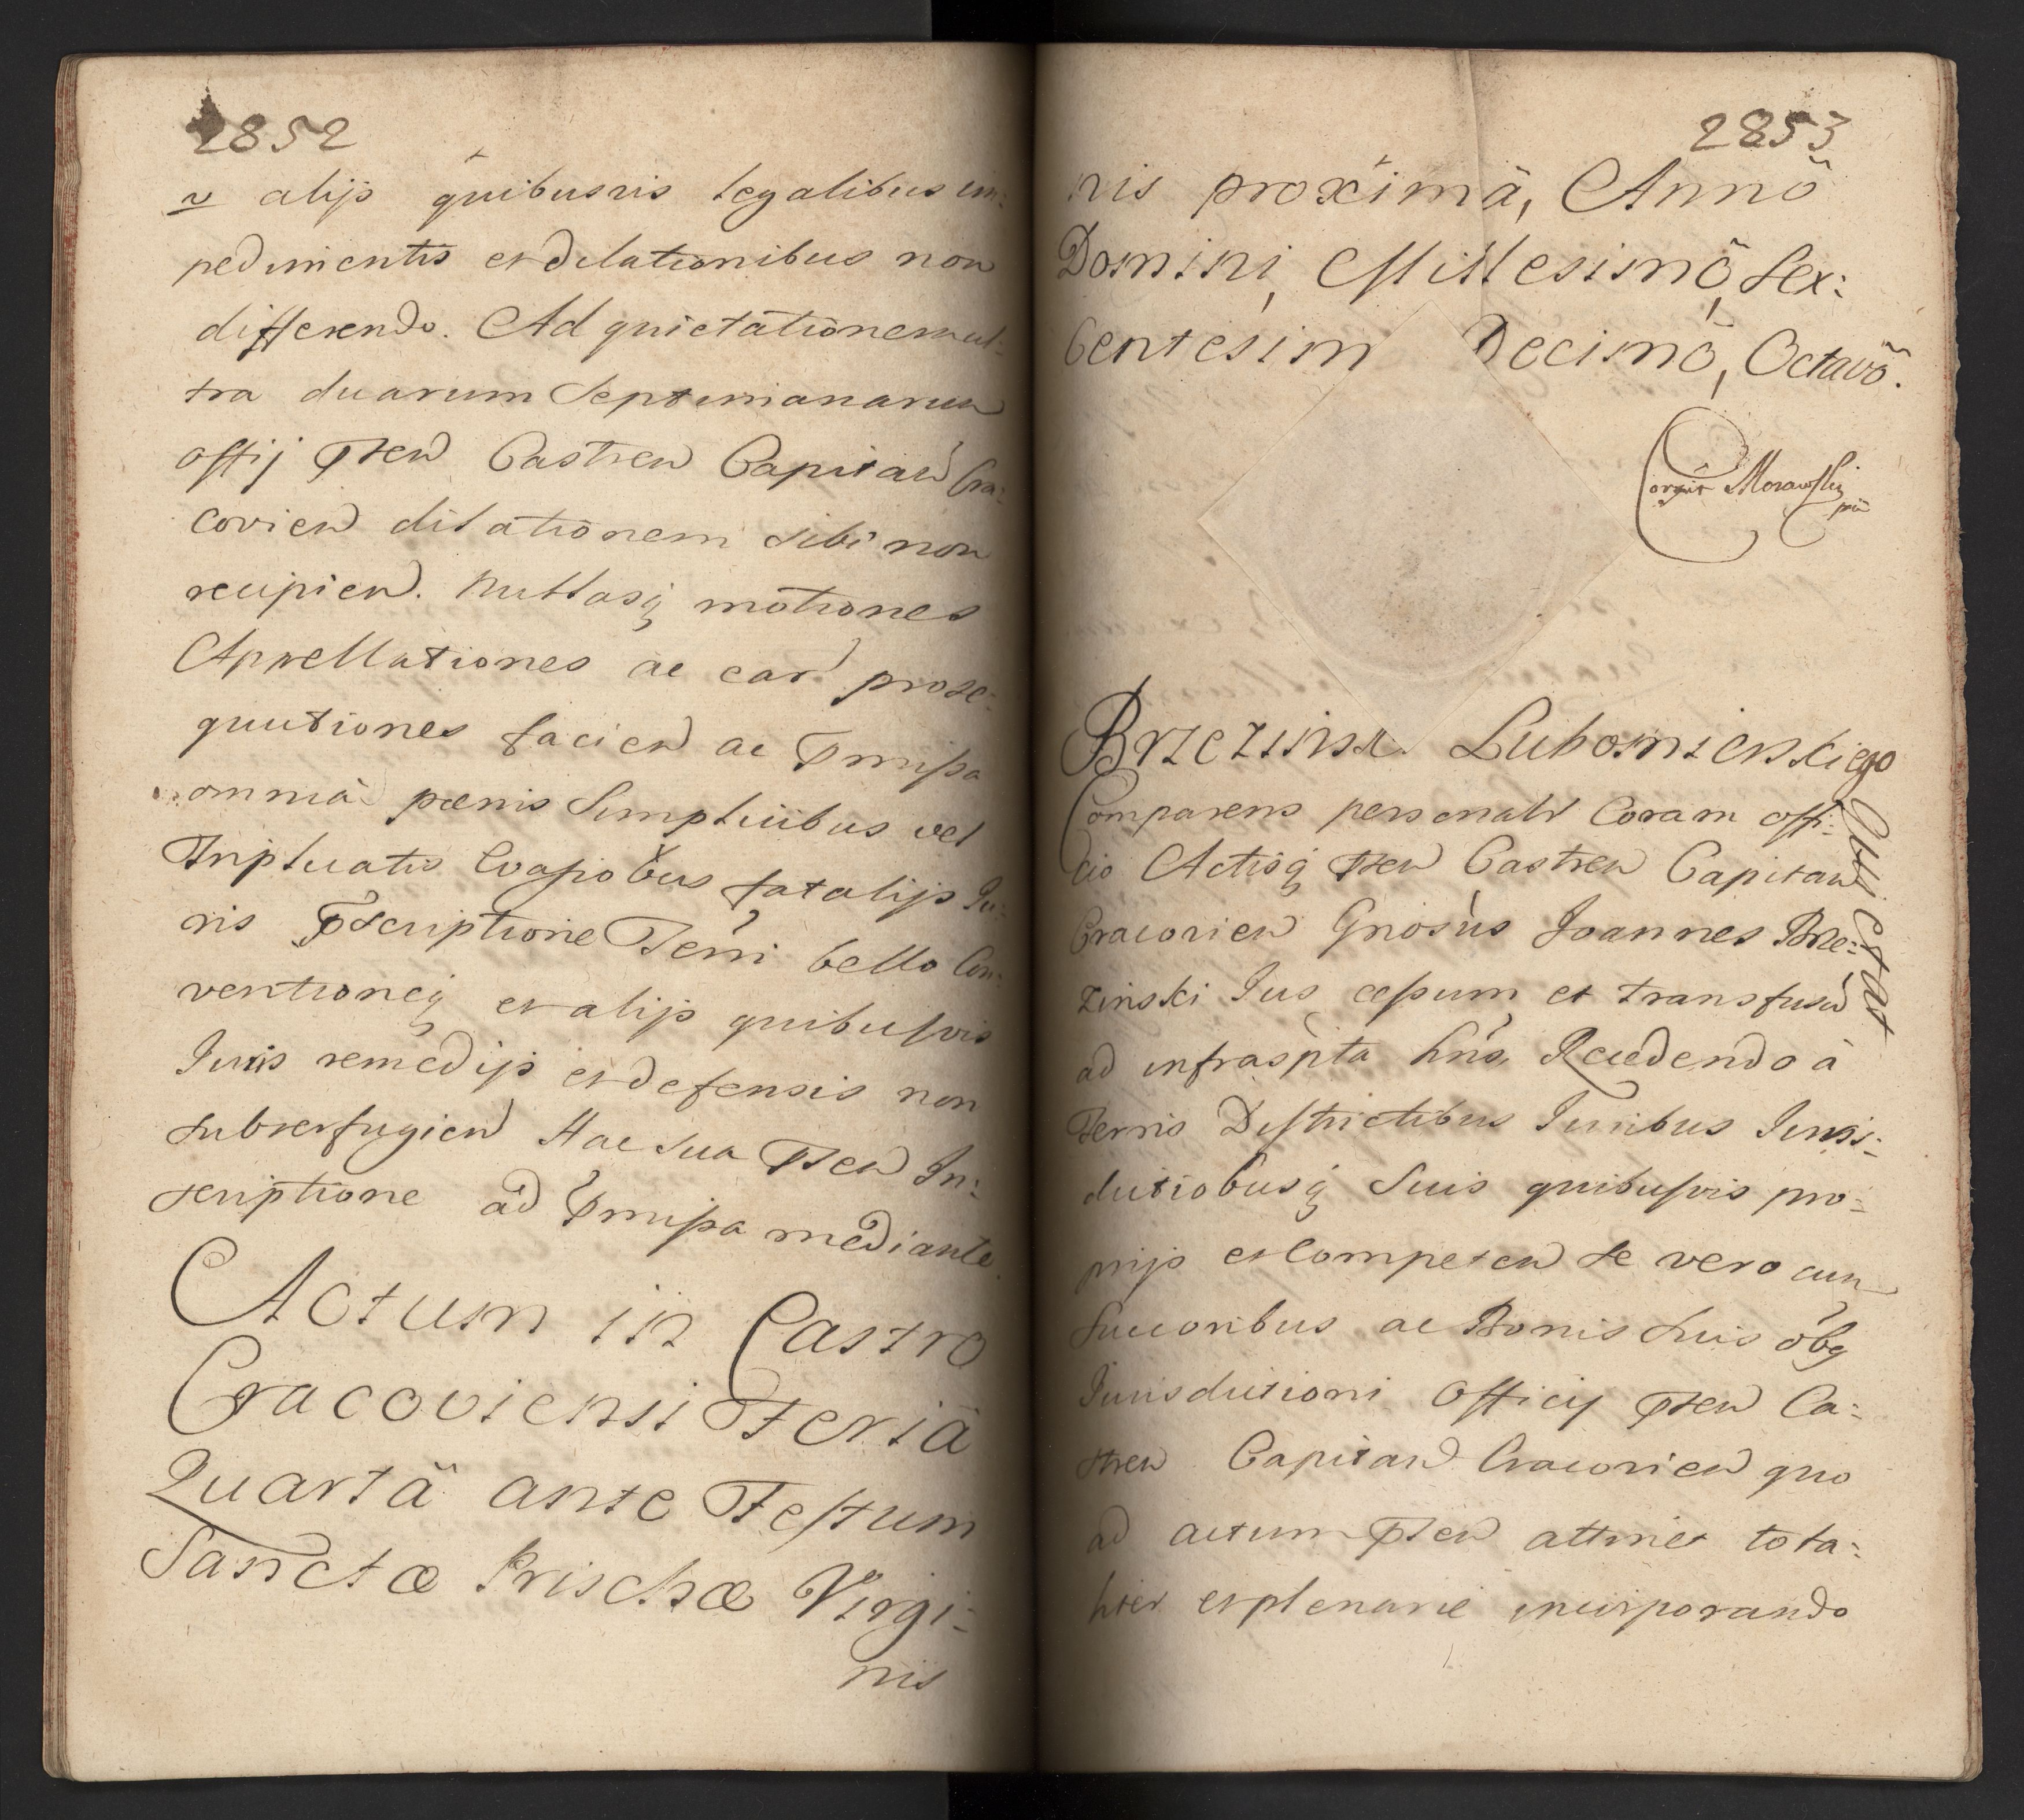 2852
v alijs quibusvis legalibus im:
pedimentis et dilationibus non
differendo. Ad quietationem ul:
tra duarum Septimanarum
offij pnten Castren Capitan Cra:
covien dilationem sibi non
recipien. Nullasq motiones
Appellationes ac ear prose:
quutiones facien ac pmissa
omnia pœnis Simplicibus vel
Triplicatis Evasiobus fatalijs Ju:
ris Pscriptione Terri bello Con:
ventioneq et alijs quibusvis
Juris remedijs et defensis non
subterfugien Hac sua pnten In:
scriptione ad pmissa mediante.
Actum in Castro
Cracoviensi Feriâ
Quartâ ante Festum
Sanctæ Prischæ Virgi:
nis
2853
nis proximâ, Annô
Domini, Millesimô, Sex:
Centesim Decimô, Octavô.
Corexit Morawski
mp
Brzezinsk. Lubomienskiego
Quietat
Comparens personalr Coram offi:
cio Actisq pnten Castren Capitan
Cracovien Gnosus Joannes Brze:
zinski Jus cessum et transfusu
ad infrascpta hns, Recedendo à
Terris Districtibus Juribus Juris:
dictiobusq Suis quibusvis pro:
prijs et Competen se vero cum
Succoribus ac Bonis Suis obq
Jurisdictioni Officij pnten Ca:
stren Capitan Cracovien quo
ad actum pnten attinet tota:
liter et plenarie incorporando